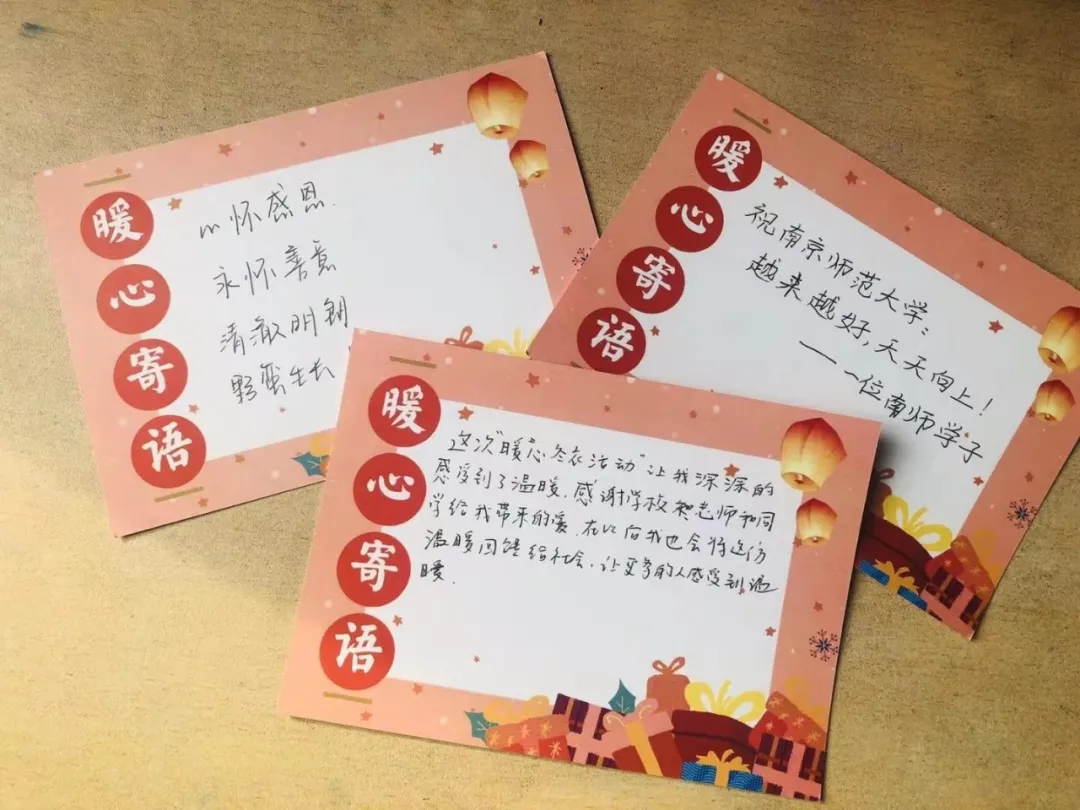 暖心寄语
心怀感恩.
永怀善意
清澈明朗
野蛮生长
暖心寄语
祝南京师范大学:
越来越好,天天向上!
——一位南师学子
暖心寄语
这次“暖心冬衣活动”让我深深的
感受到了温暖.感谢学校和老师和同
学给我带来的爱.在以后我也会将这份
温暖回馈给社会,让更多的人感受到温
暖.